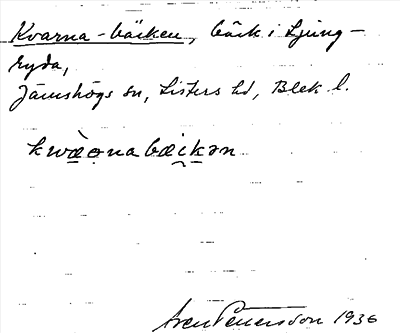 Kvarna-bäcken, bäck i Ljung-
ryda,
Jämshögs sn, Listers hd, Blek l.
kwæ̀ǫna bæi̯kən
Sven Petersson 1936